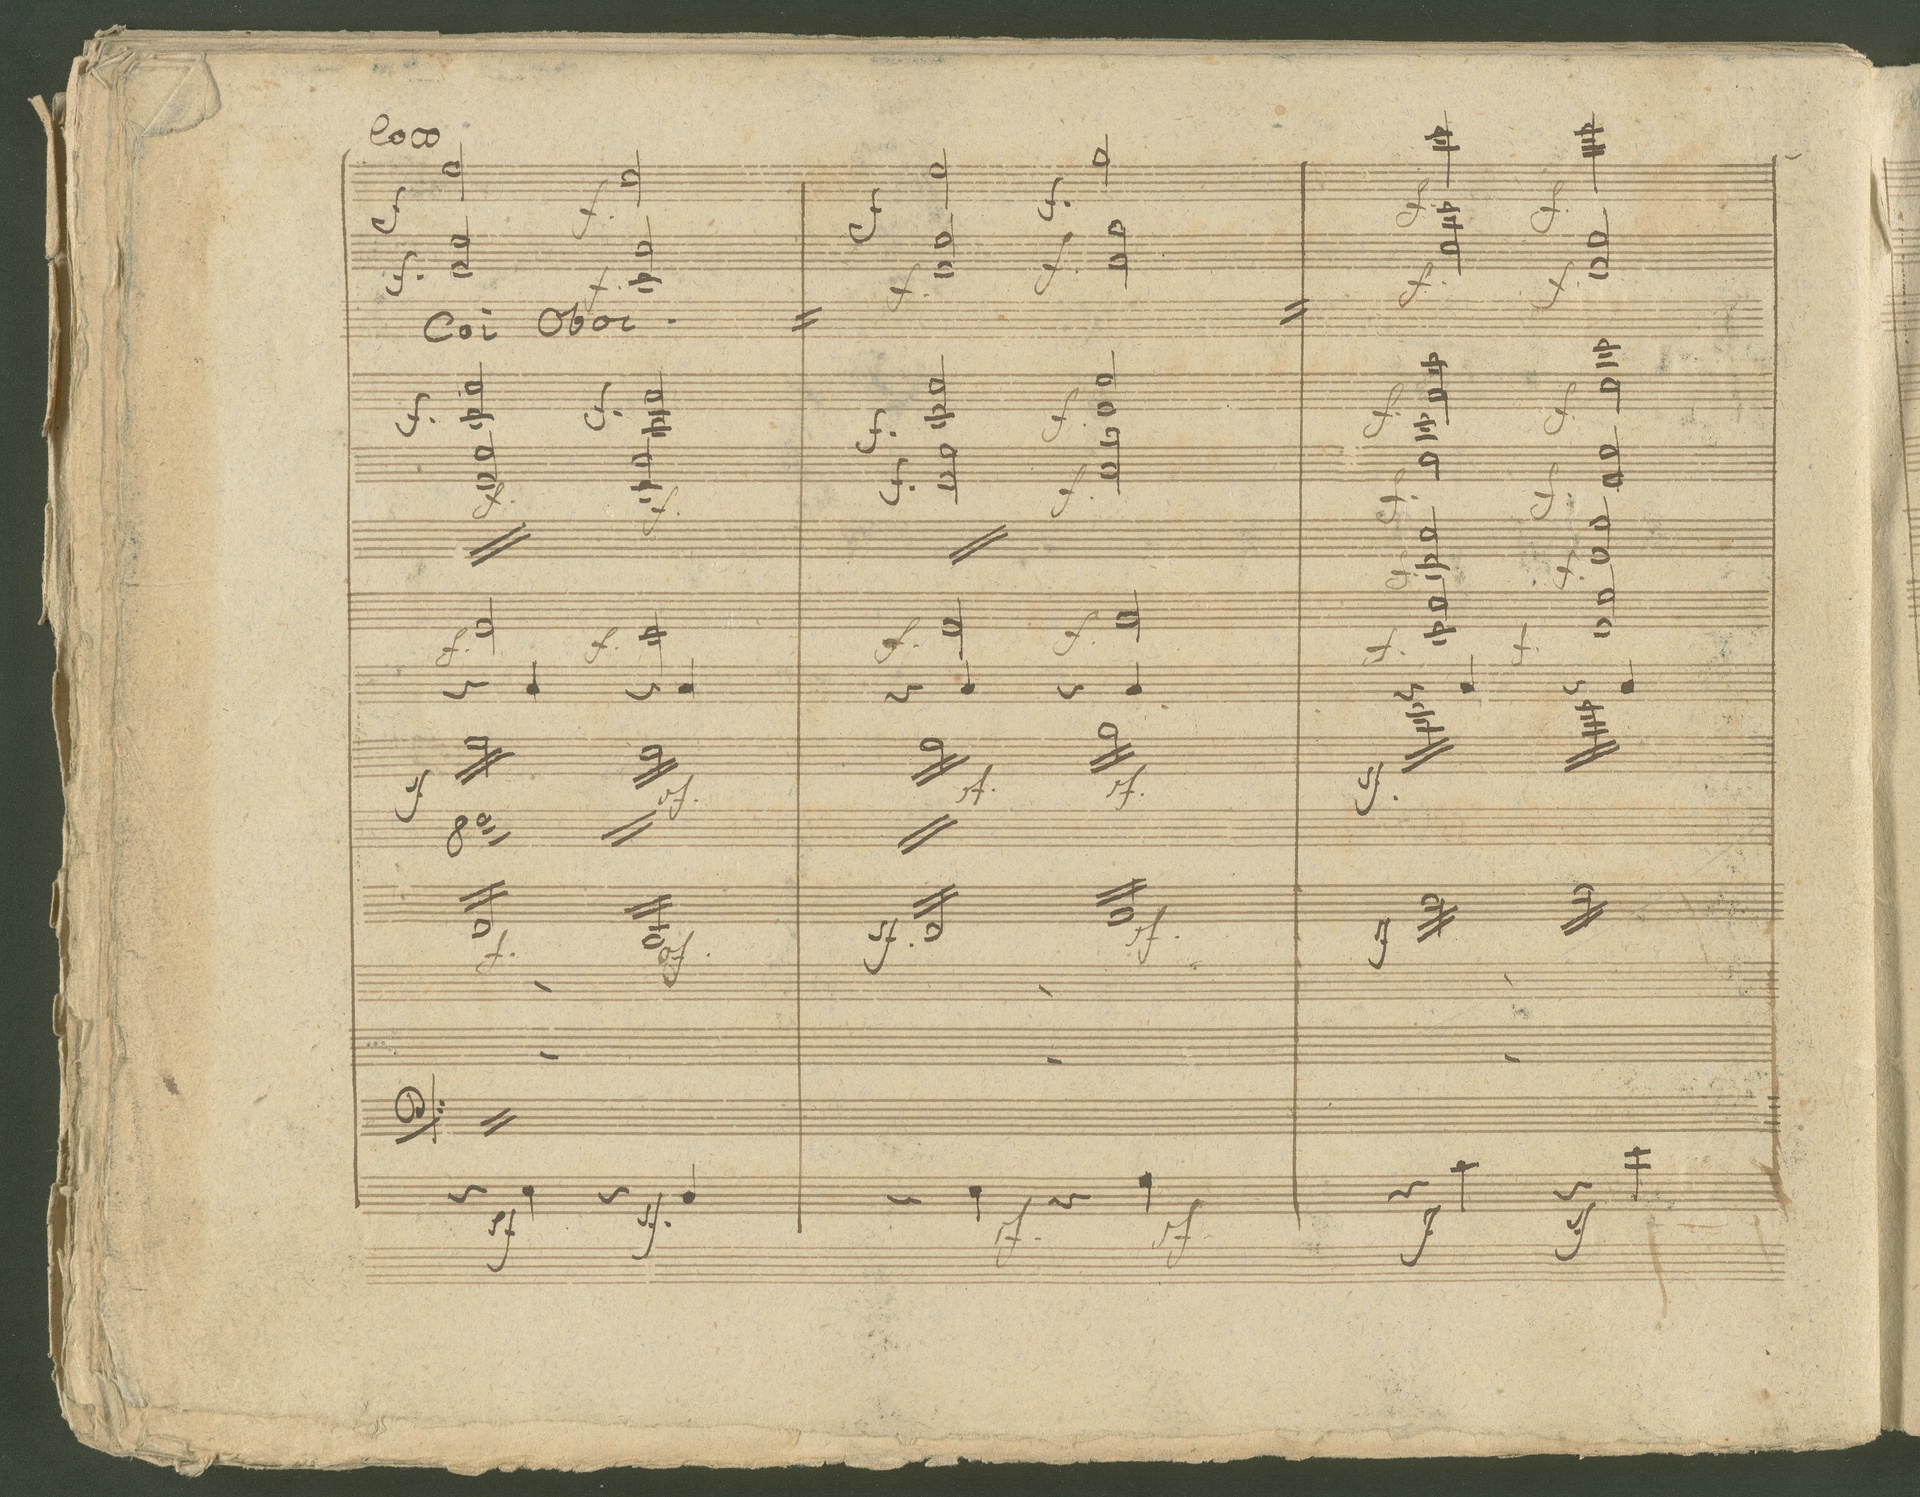 loco
f. f. f. f. f. f.
f. f. f. f. f. f.
Coi Oboi.
f. f. f. f. f. f.
f. f. f. f. f. f.
f. f.
f. f. f. f. f. f.
sf sf. sf. sf. sf.
8va
f. sf. sf. sf. sf
sf sf. sf. sf. sf sf